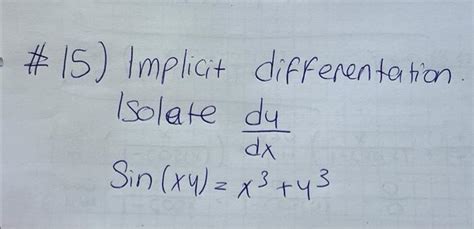 #15) Implicit differentation.
Isolate dy/dx
Sin(xy) = x³ + y³